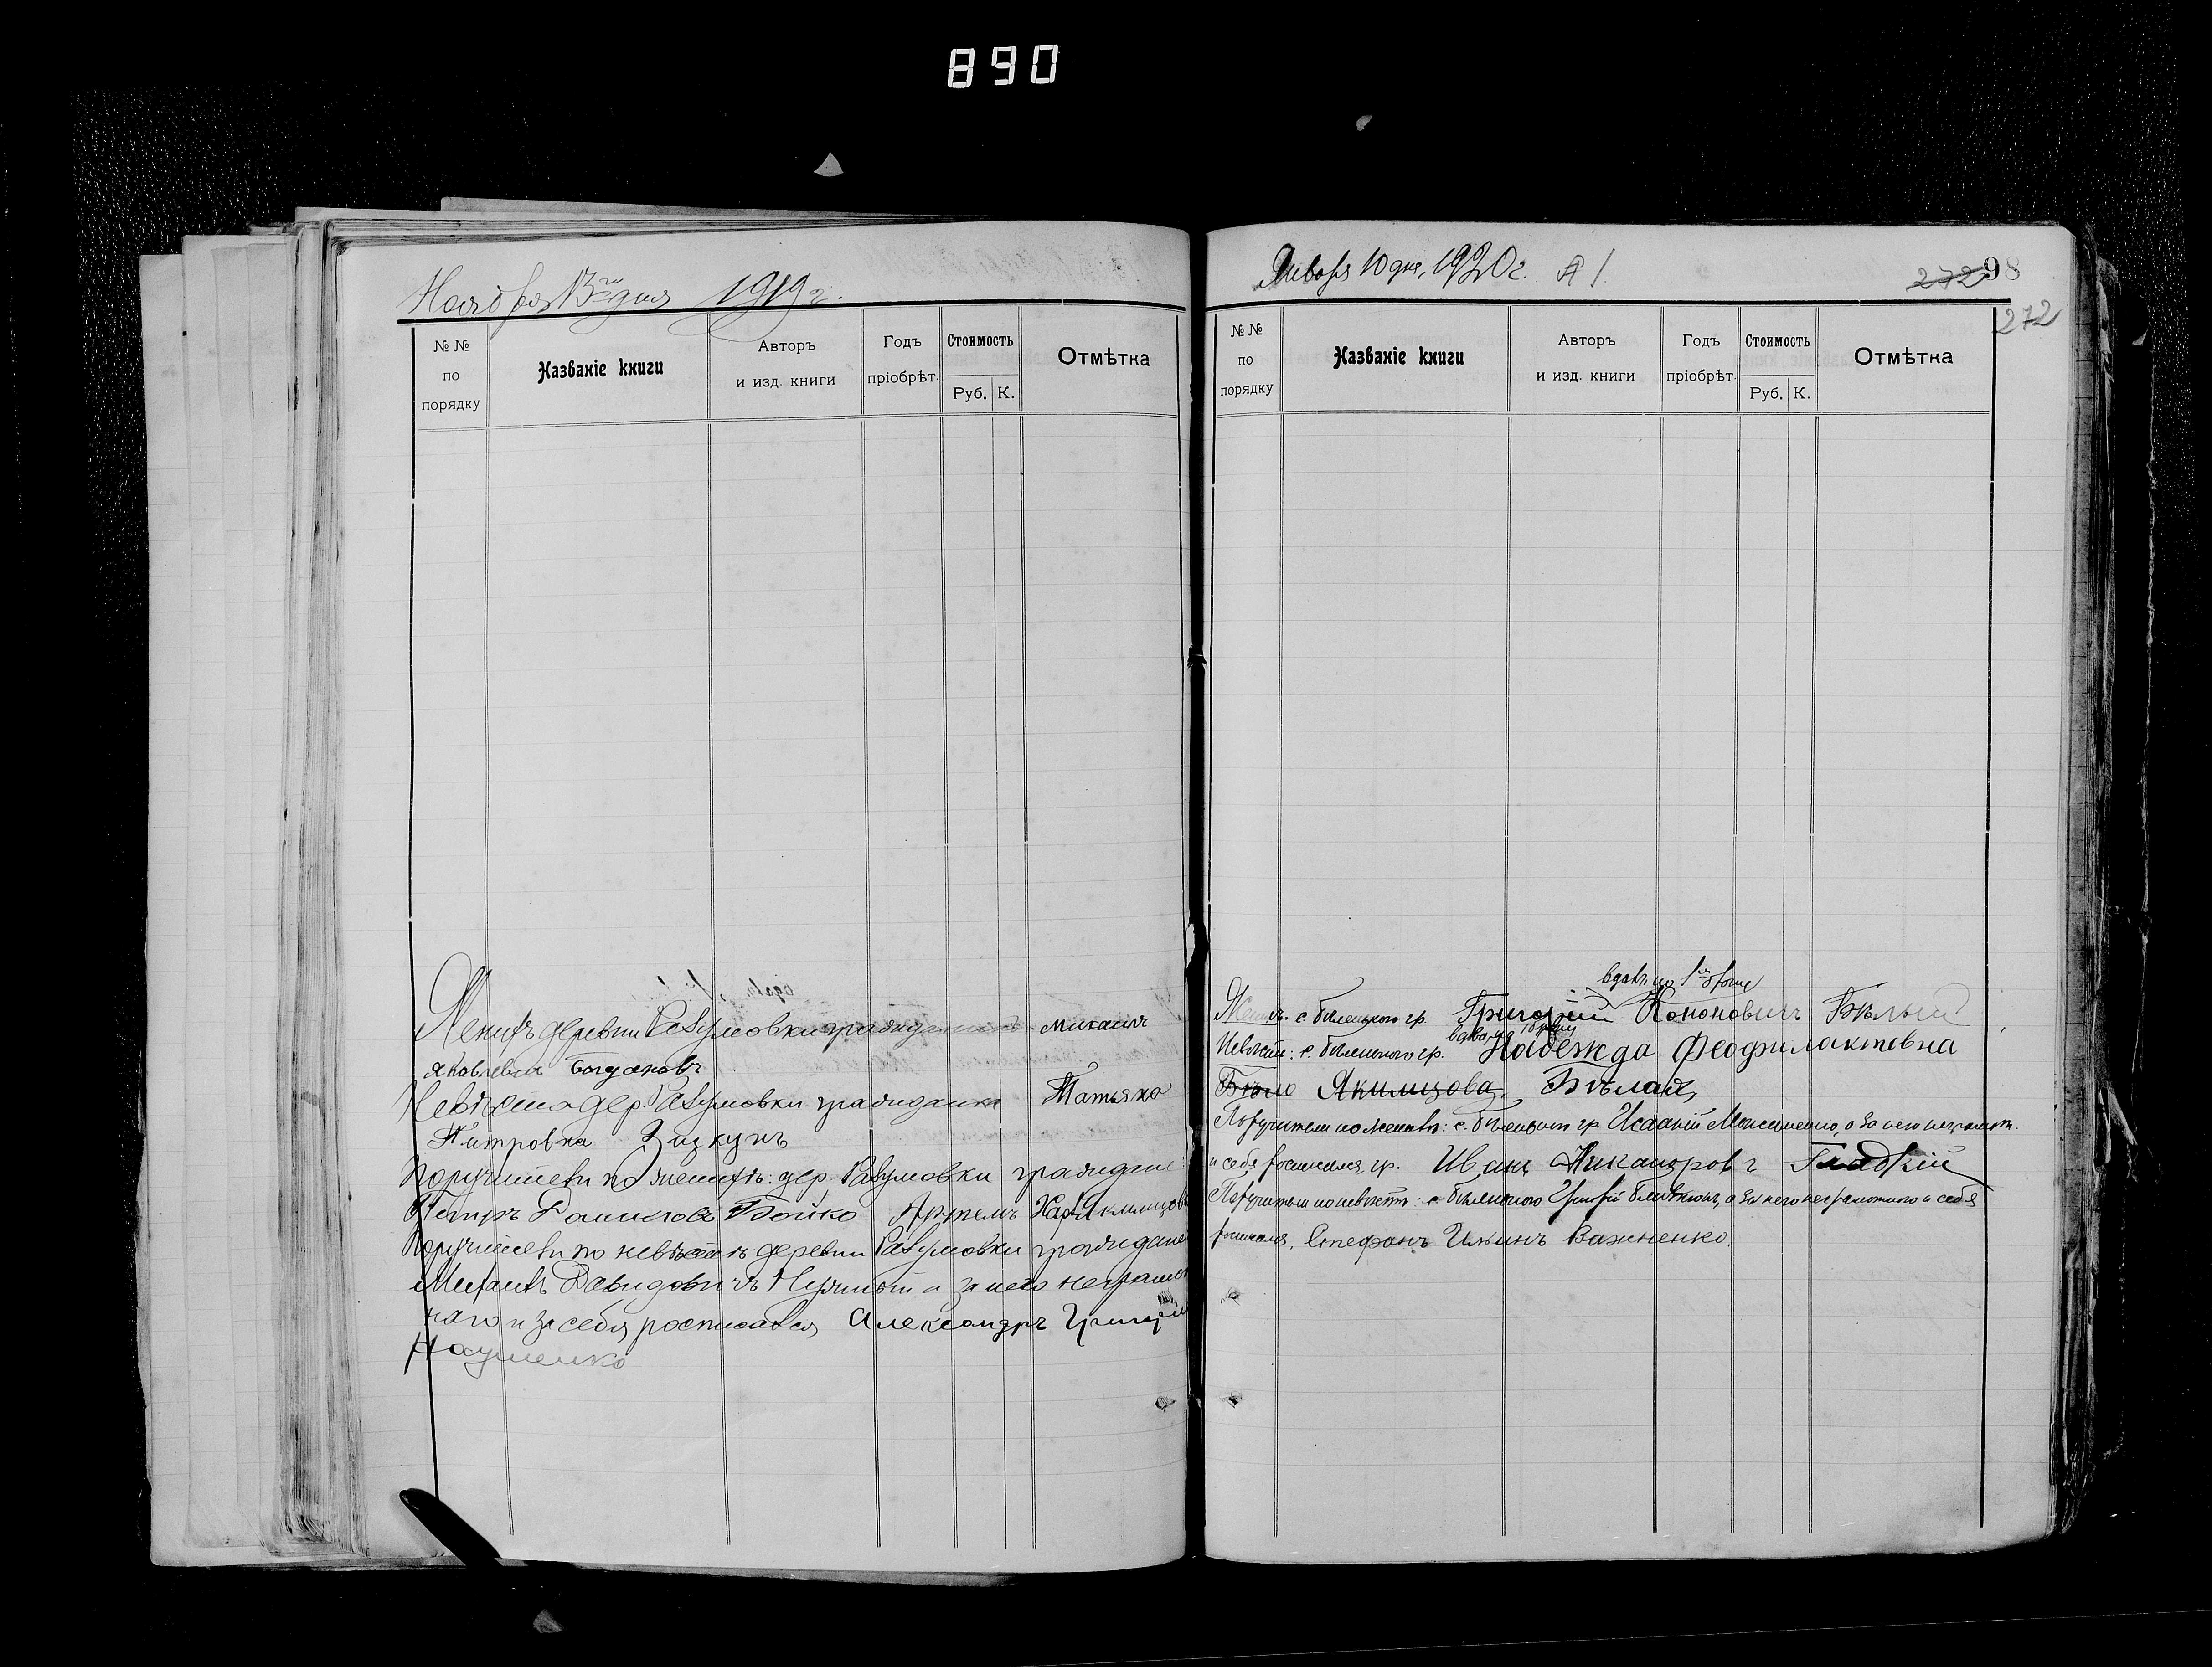 890
Ноября 13го дня 1919 г.
№ № по порядку
Названіе книги
Авторъ и изд. книги
Годъ пріобрѣт.
Стоимость
Руб. К.
Отмѣтка
Женихъ деревни Разумовки гражданинъ Михаилъ
Яковлевъ Богдановъ
Невѣста дер. Разумовки гражданка Татьяна
Питровна
Поручители по женихѣ: дер. Разумовки граждане:
Петръ Бойко Артемъ
Поручители по невѣстѣ деревни Разумовки граждане
Давидовичъ а за него неграмот
наго и за себя росписался Александръ Григорій
Науменко
Января 10 дня, 1920 г. № 1
272 98
272
№ № по порядку
Названіе книги
Авторъ и изд. книги
Годъ пріобрѣт.
Стоимость
Руб. К.
Отмѣтка
вдовъ по 1му браку
Жених: с. Бѣленького гр. Григорій Кононовичъ Бѣлый
вдова по 1 браку
Невѣста: с. Бѣленького гр. Надежда Феофилактовна
Бѣло Якимцова Бѣлая
Поручители по женихѣ: с. Бѣленького гр. Исаакій а за него неграмотн.
и себя росписался гр. Иванъ Никаноровъ Гладкій
Поручители по невѣстѣ: с. Бѣленького Григорій а за него неграмотного и себя
росписался, Стефанъ Ильинъ Важненко.